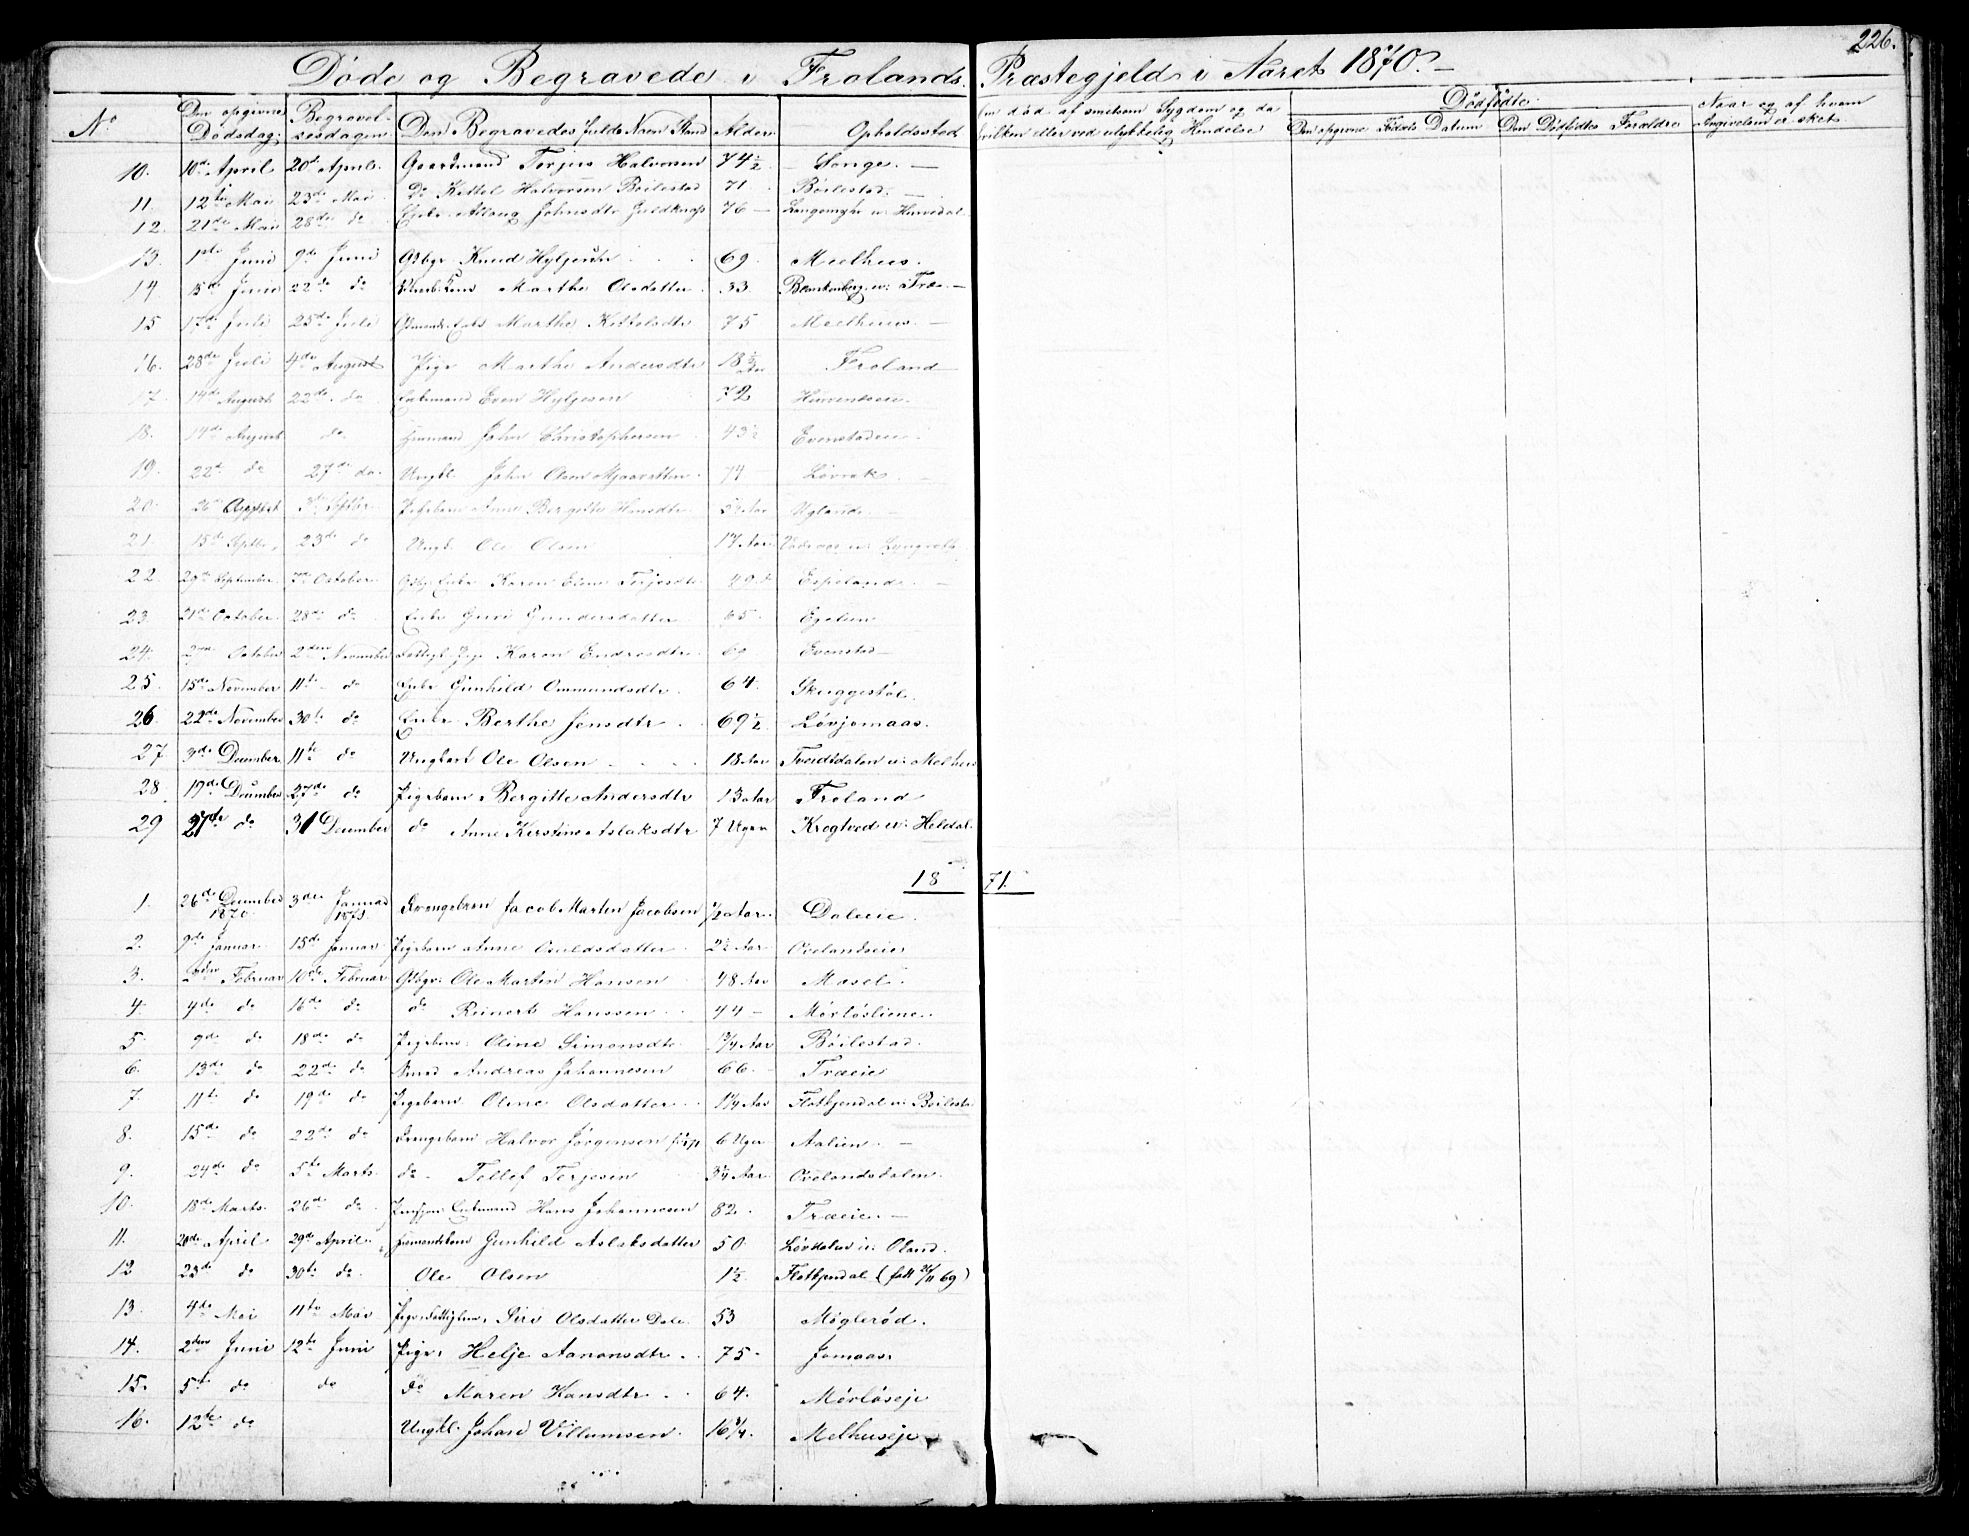 226.
Døde og Begravede i Frolands Præstegjeld i Aaret 1870.
No | Den opgivne Dødsdag | Begravelsesdagen | Den Begravedes fulde Navn Stand | Alder | Opholdsted | død af smitsom Sygdom og da hvilken eller ved ulykkelig Hendelse | Dødfødte | Den opgivne Fødsels Datum | Den Dødfødtes Forældre | Naar og af hvem Angivelsen er sket
10. 10de April 20de April Gaardmand Terjus Halvorsen 74½ Stonge.
11. 12te Mai 23de Mai Do Kittel Halvorsen Böilestad 71 Böilestad.
12. 21de Mai 28de do Enke Aslaug Johnsdtr 76 Langemyhr u: Hurvedal
13. 1ste Juni 9de Juni Gsbgr. Knud Hylgesen 69. Melhuus.
14 15de Juni 22de do Marthe Olsdatter 33. Blankenberg u: Træ.
15 17de Juli 25de Juli Marthe Kittelsdtr 75 Melhuus.
16. 28de Juli 4de August Pige Marthe Andersdtr 18 Froland
17. 14de August 22de do Enkemand Even Hylgesen 72
18. 14de August do Huusmand John Christophersen 43½ Evenstadeie.
19. 22de do 27de do Ungkl. John Olsen 74 Lövrak.
20. August Septbr Pigebarn Anne Bergitte Aar Uglande.
21. 15de Septbr. 23de do Ungk. Ole Olsen 17 Aar u: Lyngroth
22. 29de September 7de October Karen Eline Terjesdtr 49 Espeland
23. 21de October 28de do Enke Guri Gundersdatter 65 Egelien
24. October 2den November Pige Karen Endresdtr Evenstad
25. 15de November 11te do Enke Gunhild Ommundsdtr. 64. Skuggestöl.
26 22de November 30te do Enke Berthe Jensdtr 69½ Lövjomaas.
27 3de December 11te do Ungkarl Ole Olsen 18 Aar Tveidtdalen u: Melhuus
28. 19de December 27de do Pigebarn Bergitte Andersdtr 13 Aar Froland
29 27de do 31 December do Anne Kirstine Aslaksdtr 7 Uger Krogtved u: Heldal.
1871.
1. 26de December 1870. 3die Januar 1871 Drengebarn Jacob Martin Jacobsen ½ Aar. Daleeie.
2. 9de Januar 15de Januar Pigebarn Anne Osuldsdatter 2½ Aar Ovelandseie
3. 2den Februar 10de Februar Gsbgr. Ole Martin Hansen 48 Aar Mosel.
4. 4de do 16de do do Reinert Hanssen 44 Mörlösliene.
5. 9de do 18de do Pigebarn: Oline Simonsdtr Aar Böilestad.
6. 13de do 22de do Andreas Johannesen 66. Træeie
7. 11te do 19de do Pigebarn Oline Olsdatter 1¼ Aar Flatkjendal u: Böilestad
8. 15de do 22de do Drengebarn Halvor Jörgensen 6 Uger Aalien.
9. 24de do 5te Marts. do Tellef Terjesen 3¼ Aar Ovelandsdalen.
10. 18de Marts. 26de do Enkemand Hans Johannesen 82. Træeie.
11. 20de April 29de April Gunhild Aslaksdatter 50 Lövdalen u: Oland.
12 23de do 30te do Ole Olsen 1½ Flatkjendal (født 26/11 69)
13. 4de Mai 11te Mai Siri Olsdatter Dale 53 Möglerød.
14. 2den Juni 12te Juni Pige: Helje Aanonsdtr. 75 Jomaas.
15. 5te do do do Maren Hansdtr 64. Mörlöseje
16. 12te do Ungkl. Johan Villumsen. 16¾. Melhuseje